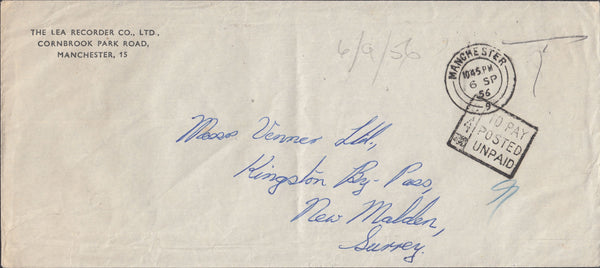 THE LEA RECORDER CO., LTD.,
CORNBROOK PARK ROAD,
MANCHESTER, 15
6/9/56
MANCHESTER
10 45 PM
6 SP
56
9
TO PAY
POSTED
UNPAID
Messrs Venner Ltd.,
Kingston By-Pass,
New Malden,
Surrey.